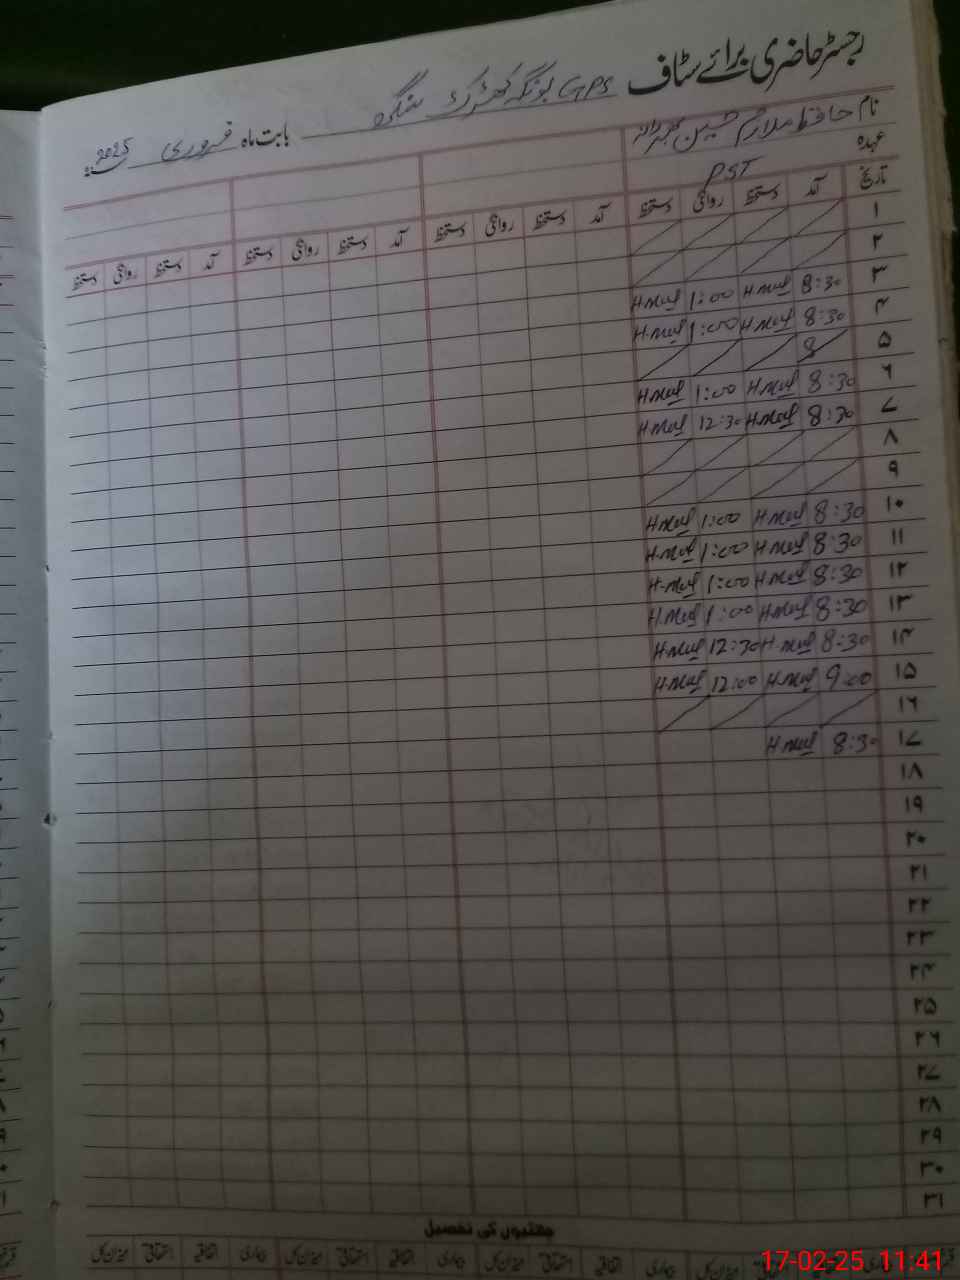 رجسٹر حاضری برائے سٹاف GPS بونگہ کھڑک سنگھ بابت ماہ فروری 2025ء
نام حافظ ملازم حسین
عہدہ PST
تاریخ آمد دستخط روانگی دستخط آمد دستخط روانگی دستخط آمد دستخط روانگی دستخط آمد دستخط روانگی دستخط
۱
۲
۳ 8:30 1:00
۴ 8:30 1:00
۵ 8
۶ 8:30 1:00
۷ 8:30 12:30
۸
۹
۱۰ 8:30 1:00
۱۱ 8:30 1:00
۱۲ 8:30 1:00
۱۳ 8:30 1:00
۱۴ 8:30 12:30
۱۵ 9:00 12:00
۱۶
۱۷ 8:30
۱۸
۱۹
۲۰
۲۱
۲۲
۲۳
۲۴
۲۵
۲۶
۲۷
۲۸
۲۹
۳۰
۳۱
چھٹیوں کی تفصیل
بیماری اتفاقیہ استحقاقی میزان کل بیماری اتفاقیہ استحقاقی میزان کل بیماری اتفاقیہ استحقاقی میزان کل
17-02-25 11:41